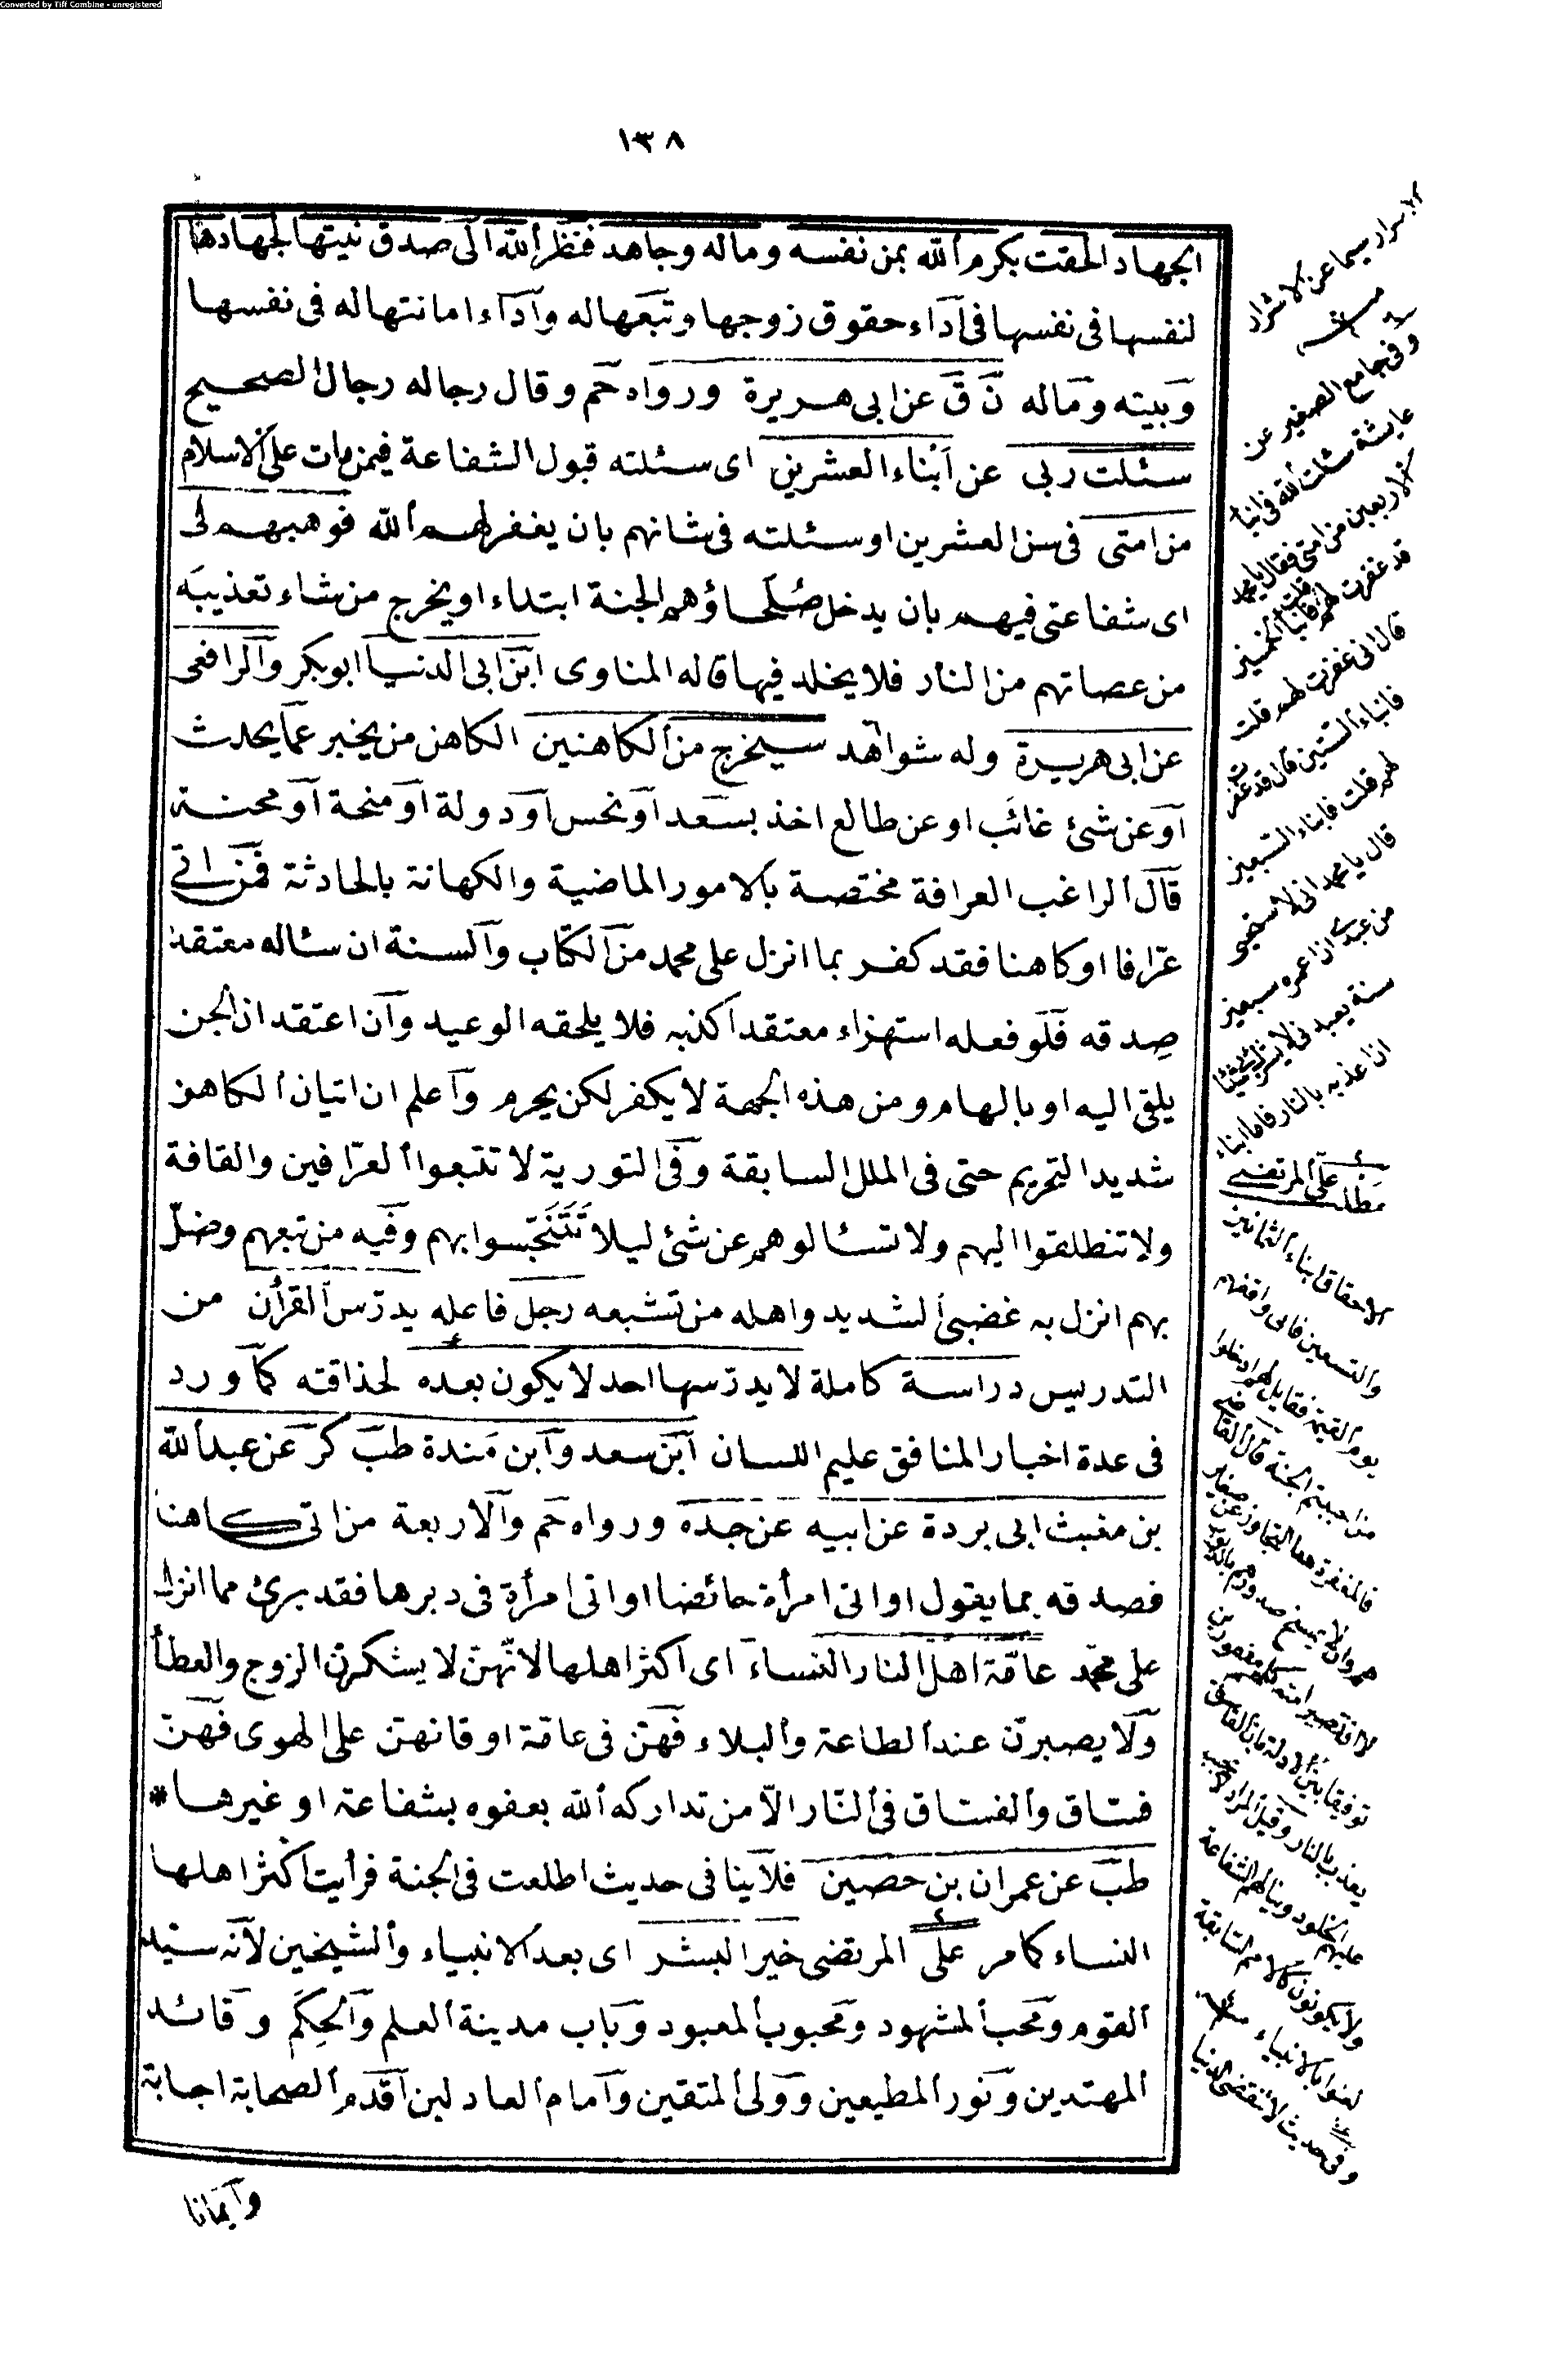 Converted by Tiff Combine - unregistered
١٣٨
الجهاد الحقت بكرم الله بمن نفسه وماله وجاهد فنظر الله الى صدق نيتها لجهادها
لنفسها فى نفسها فى آداء حقوق زوجها وتبعها له وآداء امانتها له فى نفسها
وبيته وماله ن ق عن ابى هريرة ورواه حم وقال رجاله رجال الصحيح
سئلت ربى عن ابناء العشرين اى سئلته قبول الشفاعة فيمن مات على الاسلام
من امتى فى سن العشرين او سئلته فى شانهم بان يغفر لهم الله فوهبهم لى
اى شفاعتى فيهم بان يدخل صلحاؤهم الجنة ابتداء او يخرج من شاء تعذيبه
من عصاتهم من النار فلا يخلد فيها قاله المناوى ابن ابى الدنيا ابو بكر والرافعى
عن ابى هريرة وله شواهد سيخرج من الكاهنين الكاهن من يخبر عما يحدث
او عن شئ غائب او عن طالع اخذ بسعد او نحس او دولة او منحة او محنة
قال الراغب العرافة مختصة بالامور الماضية والكهانة بالحادثة فمن اتى
عرّافا او كاهنا فقد كفر بما انزل على محمد من الكتاب والسنة ان سئاله معتقدا
صدقه فلو فعله استهزاء معتقدا كذبه فلا يلحقه الوعيد وان اعتقد ان الجن
يلقى اليه او بالهام ومن هذه الجهة لا يكفر لكن يحرم واعلم ان اتيان الكاهن
شديد التحريم حتى فى الملل السابقة وفى التورية لا تتبعوا العرّافين والقافة
ولا تنطلقوا اليهم ولا تسئالوهم عن شئ ليلا تتنجّسوا بهم وفيه من تبعهم وضلّ
بهم انزل به غضبى الشديد واهله من تشبعه رجل فاعله يدرّس القرأن من
التدريس دراسة كاملة لا يدرّسها احد لا يكون بعده لحذاقته كما ورد
فى عدة اخبار المنافق عليم اللسان ابن سعد وابن مندة طب كر عن عبد الله
بن مغبث ابى بردة عن ابيه عن جده ورواه حم والاربعة من اتى كاهنا
فصدقه بما يقول او اتى امرأة حائضا او اتى امرأة فى دبرها فقد برئ مما انزل
على محمد عامّة اهل النار النساء اى اكثر اهلها لانّهنّ لا يشكرن الزوج والعطأ
ولا يصبرن عند الطاعة والبلاء فهنّ فى عامّة اوقاتهنّ على الهوى فهنّ
فسّاق والفسّاق فى النّار الاّ من تداركه الله بعفوه بشفاعة او غيرها *
طب عن عمران بن حصين فلا ينافى حديث اطلعت فى الجنة فرأيت اكثر اهلها
النساء كامر على المرتضى خير البشر اى بعد الانبياء والشيخين لانّه سيّد
القوم ومحب المشهود ومحبوب المعبود وباب مدينة العلم والحكم وقائد
المهتدين ونور المطيعين وولى المتقين وامام العادلين اقدم الصحابة اجابة
وايمانا
الاسرار سيما عن الاشرار
وفى جامع الصغير عن
عايشة سئلت الله فى ابناء
الاربعين من امتى فقال يا محمد
قد غفرت لهم قلت فابناء الخمسين
قال انى غفرت لهم قلت
فابناء الستين قال قد غفرت
لهم قلت فابناء السبعين
قال يا محمد انى لاستحيى
من عبدى اذا عمره سبعين
سنة يعبدنى لا يشرك بى شيئا
ان اعذبه بالنار فاما ابناء
مطلب على المرتضى
الاحقاق ابناء الثمانين
والتسعين فانى واقفهم
يوم القيمة فقايل لهم ادخلوا
من احببتم الجنة قال القاضى
فالمغفرة هما التجاوز عن صغاير
توفيقا بين الادلة
يعذب بالنار وقيل المراد لا يجب
عليهم الخلود وينالهم الشفاعة
ولا يكونون كالامم السابقة
لعنوا بالانبياء
وفى حديث لا تنقضى الدنيا